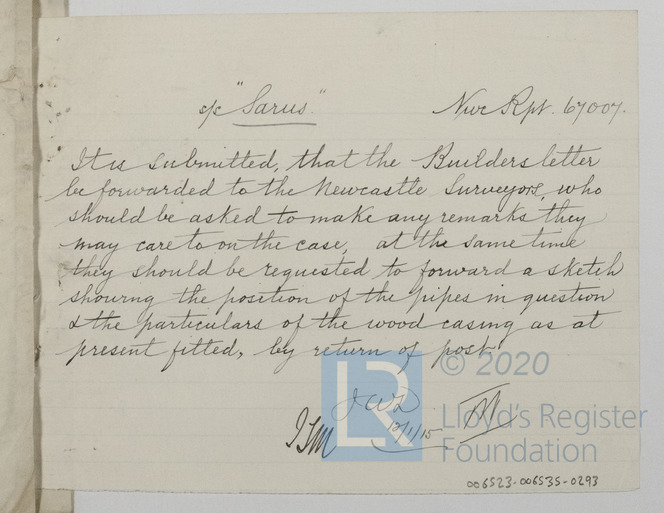 s/s "Sarus."
Nwc Rpt. 67007.
It is submitted, that the Builders letter
be forwarded to the Newcastle Surveyors, who
should be asked to make any remarks they
may care to on the case, at the same time
they should be requested to forward a sketch
showing the position of the pipes in question
& the particulars of the wood casing as at
present fitted, by return of post.
12/1/15
LR
© 2020
Lloyd's Register
Foundation
006523-006535-0293